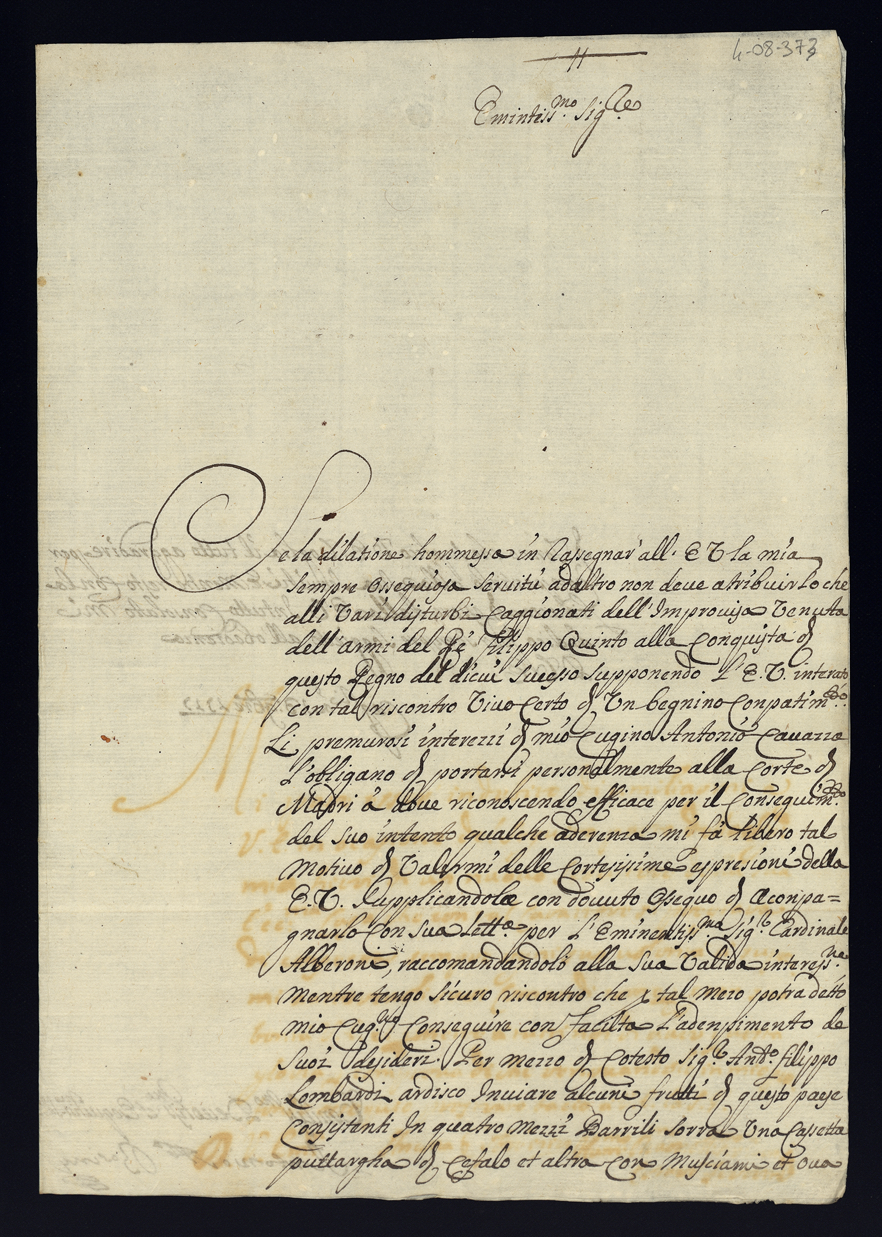 4-08-373
Emintiss.mo Sig.re
Se la dilatione hommessa in Rassegnar' all' E V la mia
sempre ossequiosa servitù ad altro non deve atribuirlo che
alli varij disturbi Caggionati dell'Improvisa Venuta
dell'armi del Ré Filippo Quinto alla Conquista di
questo Regno del dicui sucesso supponendo L'E.V. interato
con tal riscontro Vivo Certo di Un begnino Conpatim.to
Li premurosi interezzi di mio Cugino Antonio Cavazza
L'obligano di portarsi personalmente alla Corte di
Madri à dove riconoscendo efficace per il Conseguim.to
del suo intento qualche aderenza mi fà libero tal
Motivo di Valermi delle Cortesissime espresioni della
E.V. supplicandola con dovuto ossequo di aconpa=
gnarlo con sua lett.a per L'Eminentiss.mo Sig.r Cardinale
Alberoni, raccomandandolo alla sua Valida interess.ne
Mentre tengo sicuro riscontro che p tal mezo potrà detto
mio Cug.no Conseguire con facilta L'adenpimento de
suoi desideri. Per mezzo di Cotesto Sig.r Ant.o Filippo
Lombardi ardisco Inviare alcuni frutti di questo paese
Consistenti In quatro Mezzi Barrili sorra Una Cassetta
puttargha di Cefalo et altra con Musciami et ova